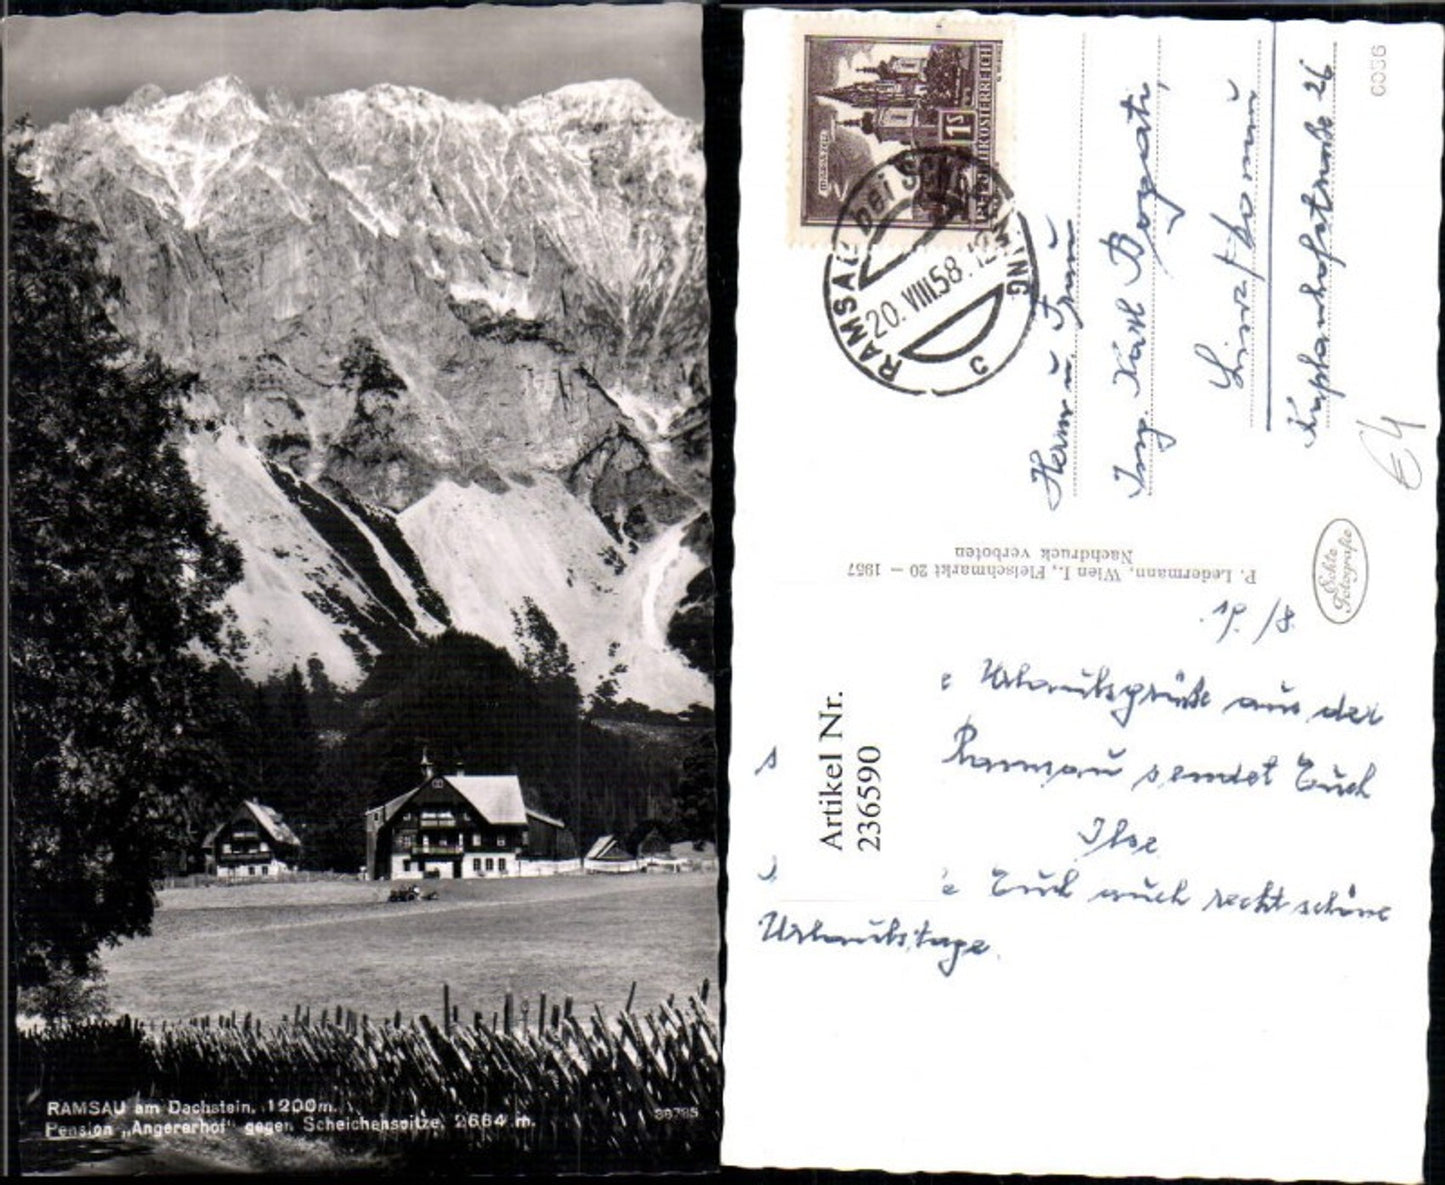 RAMSAU am Dachstein, 1200m.
Pension „Angererhof" gegen Scheichenspitze, 2664 m.
38785
MARIAZELL
1S
REPUBLIK ÖSTERREICH
RAMSAU bei SCHLADMING
20.VIII.58.12
c
Herrn u. Frau
Ing. Karl
Linz/Donau
26
6086
€4
P. Ledermann, Wien I., Fleischmarkt 20 – 1957
Nachdruck verboten
Echte
Fotografie
19./8.
Urlaubsgrüße aus der
Ramsau sendet Euch
Ilse
Euch auch recht schöne
Urlaubstage.
Artikel Nr.
236590